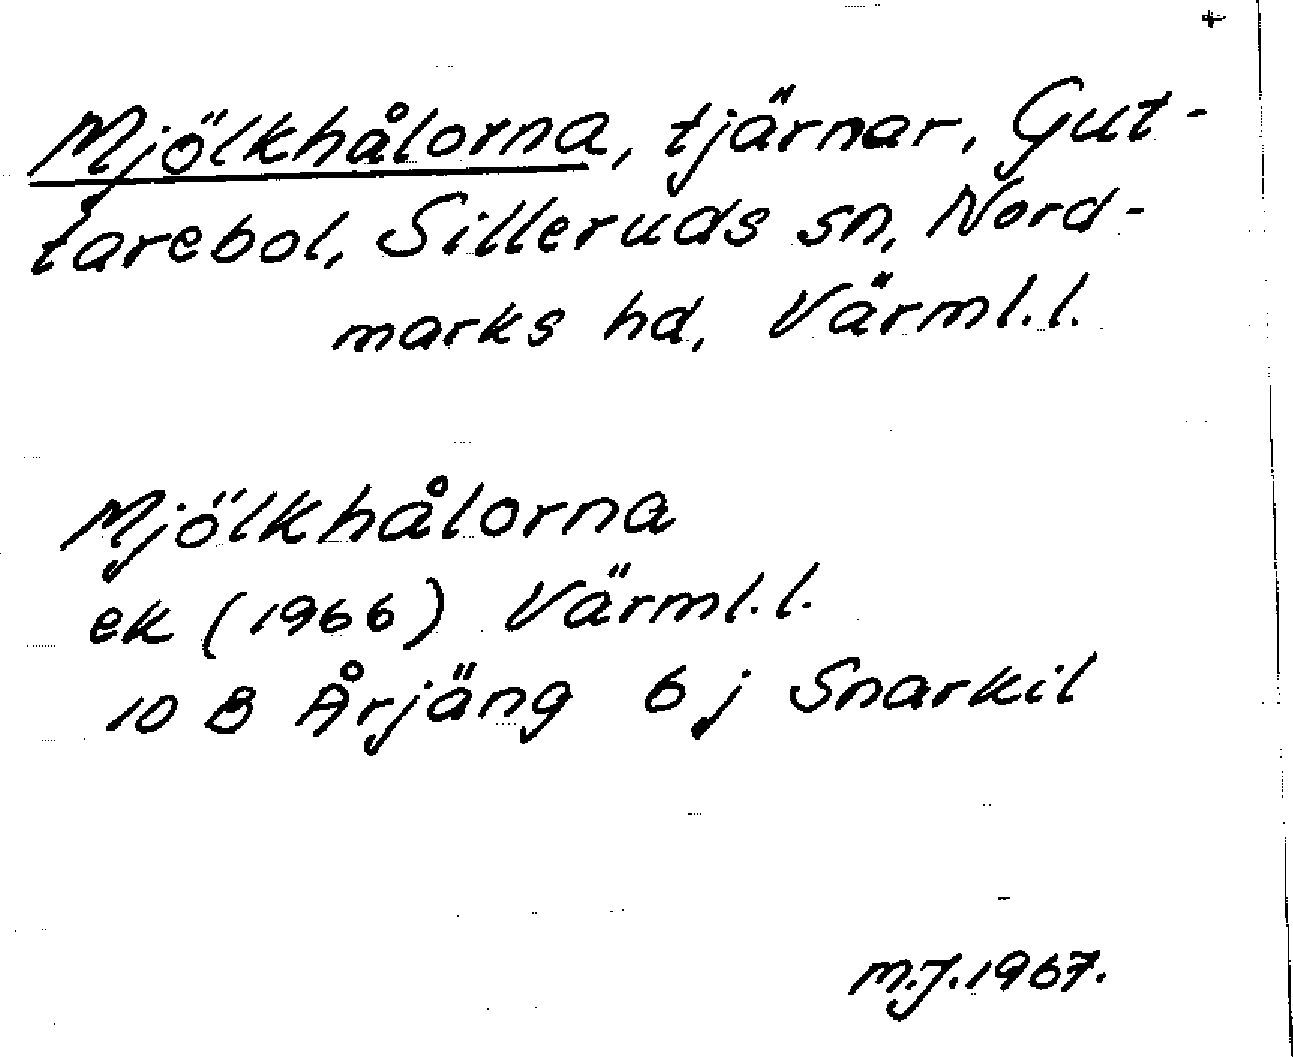 +
Mjölkhålorna, tjärnar, Gut-
tarebol, Silleruds sn, Nord-
marks hd, Värml.l.
Mjölkhålorna
ek (1966) Värml.l.
10 B Årjäng 6 j Snarkil
M.J.1967.